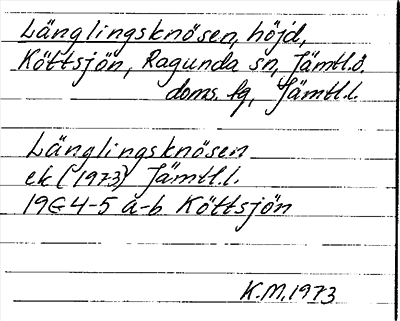 Länglingsknösen, höjd,
Köttsjön, Ragunda sn, Jämtl.ö.
doms. sg, Jämtl.l.
Länglingsknösen
ek (1973) Jämtl.l.
19G 4-5 a-b Köttsjön
K.M. 1973